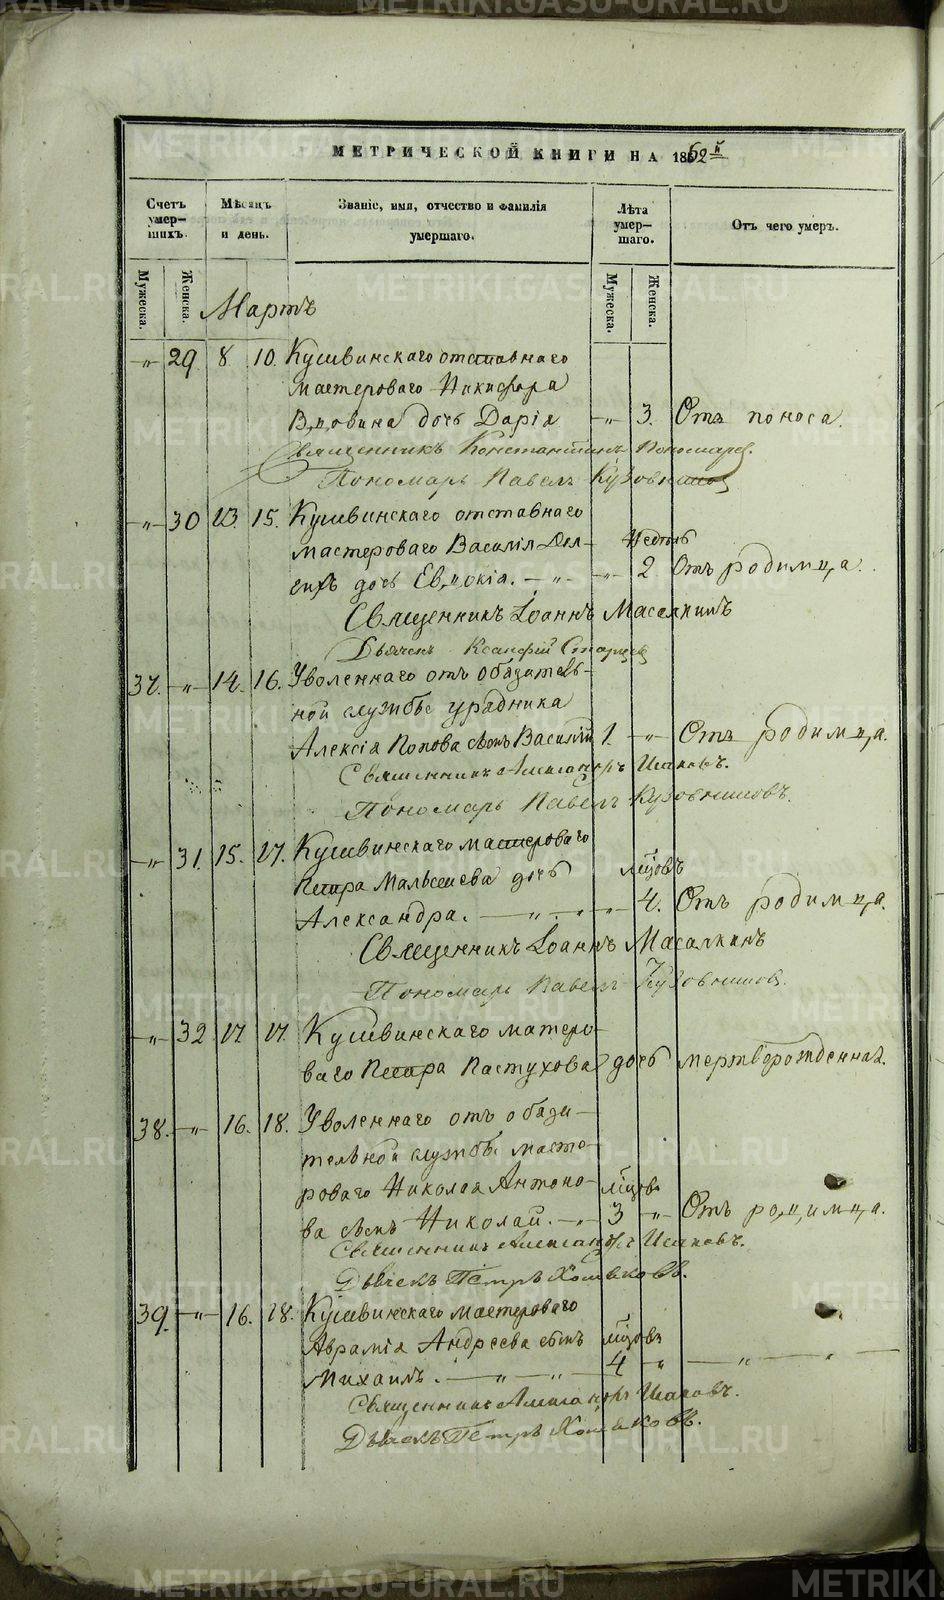 МЕТРИЧЕСКОЙ КНИГИ НА 1862й
Счетъ умер-шихъ.
Мѣсяцъ и день.
Званіе, имя, отчество и фамилія умершаго.
Лѣта умер-шаго.
Отъ чего умеръ.
Мужеска. Женска.
Мужеска. Женска.
Мартъ
„ 29 8 10. Кушвинскаго отставнаго
мастероваго Никифора
Вдовина дочь Дарія „ 3. Отъ поноса.
Священникъ Константинъ Пономарев.
Пономарь Павелъ Кузовников
„ 30 13. 15. Кушвинскаго отставнаго
мастероваго Василія
дочь Евдокія. „ 2 Отъ родимца.
Священникъ Іоаннъ Масалкинъ
Дьячекъ Ксанфій Старцев
37. „ 14. 16. Уволеннаго отъ обязатель-
ной службы урядника
Алексія Попова сынъ Василій 1. „ Отъ родимца.
Священникъ Александръ Исаковъ.
Пономарь Павелъ Кузовниковъ.
„ 31. 15. 17. Кушвинскаго мастероваго
Петра Малышева дочь мѣсцовъ
Александра. „ „ 4. Отъ родимца.
Священникъ Іоаннъ Масалкинъ
Пономарь Павелъ Кузовников.
„ 32 17 17. Кушвинскаго мастеро-
ваго Петра Пастухова дочь мертворожденная.
38. „ 16. 18. Уволеннаго отъ обяза-
тельной службы масте-
роваго Николая Антоно- мѣсцовъ
ва сынъ Николай. „ 3 „ Отъ родимца.
Священникъ Александръ Исаковъ.
Дьячекъ Петръ Хомяковъ.
39. „ 16. 18. Кушвинскаго мастероваго
Аврамія Андреева сынъ мѣсцовъ
Михаилъ. „ „ 4 „ „ „
Священникъ Александръ Исаковъ.
Дьячекъ Петръ Хомяковъ.
METRIKI.GASO-URAL.RU